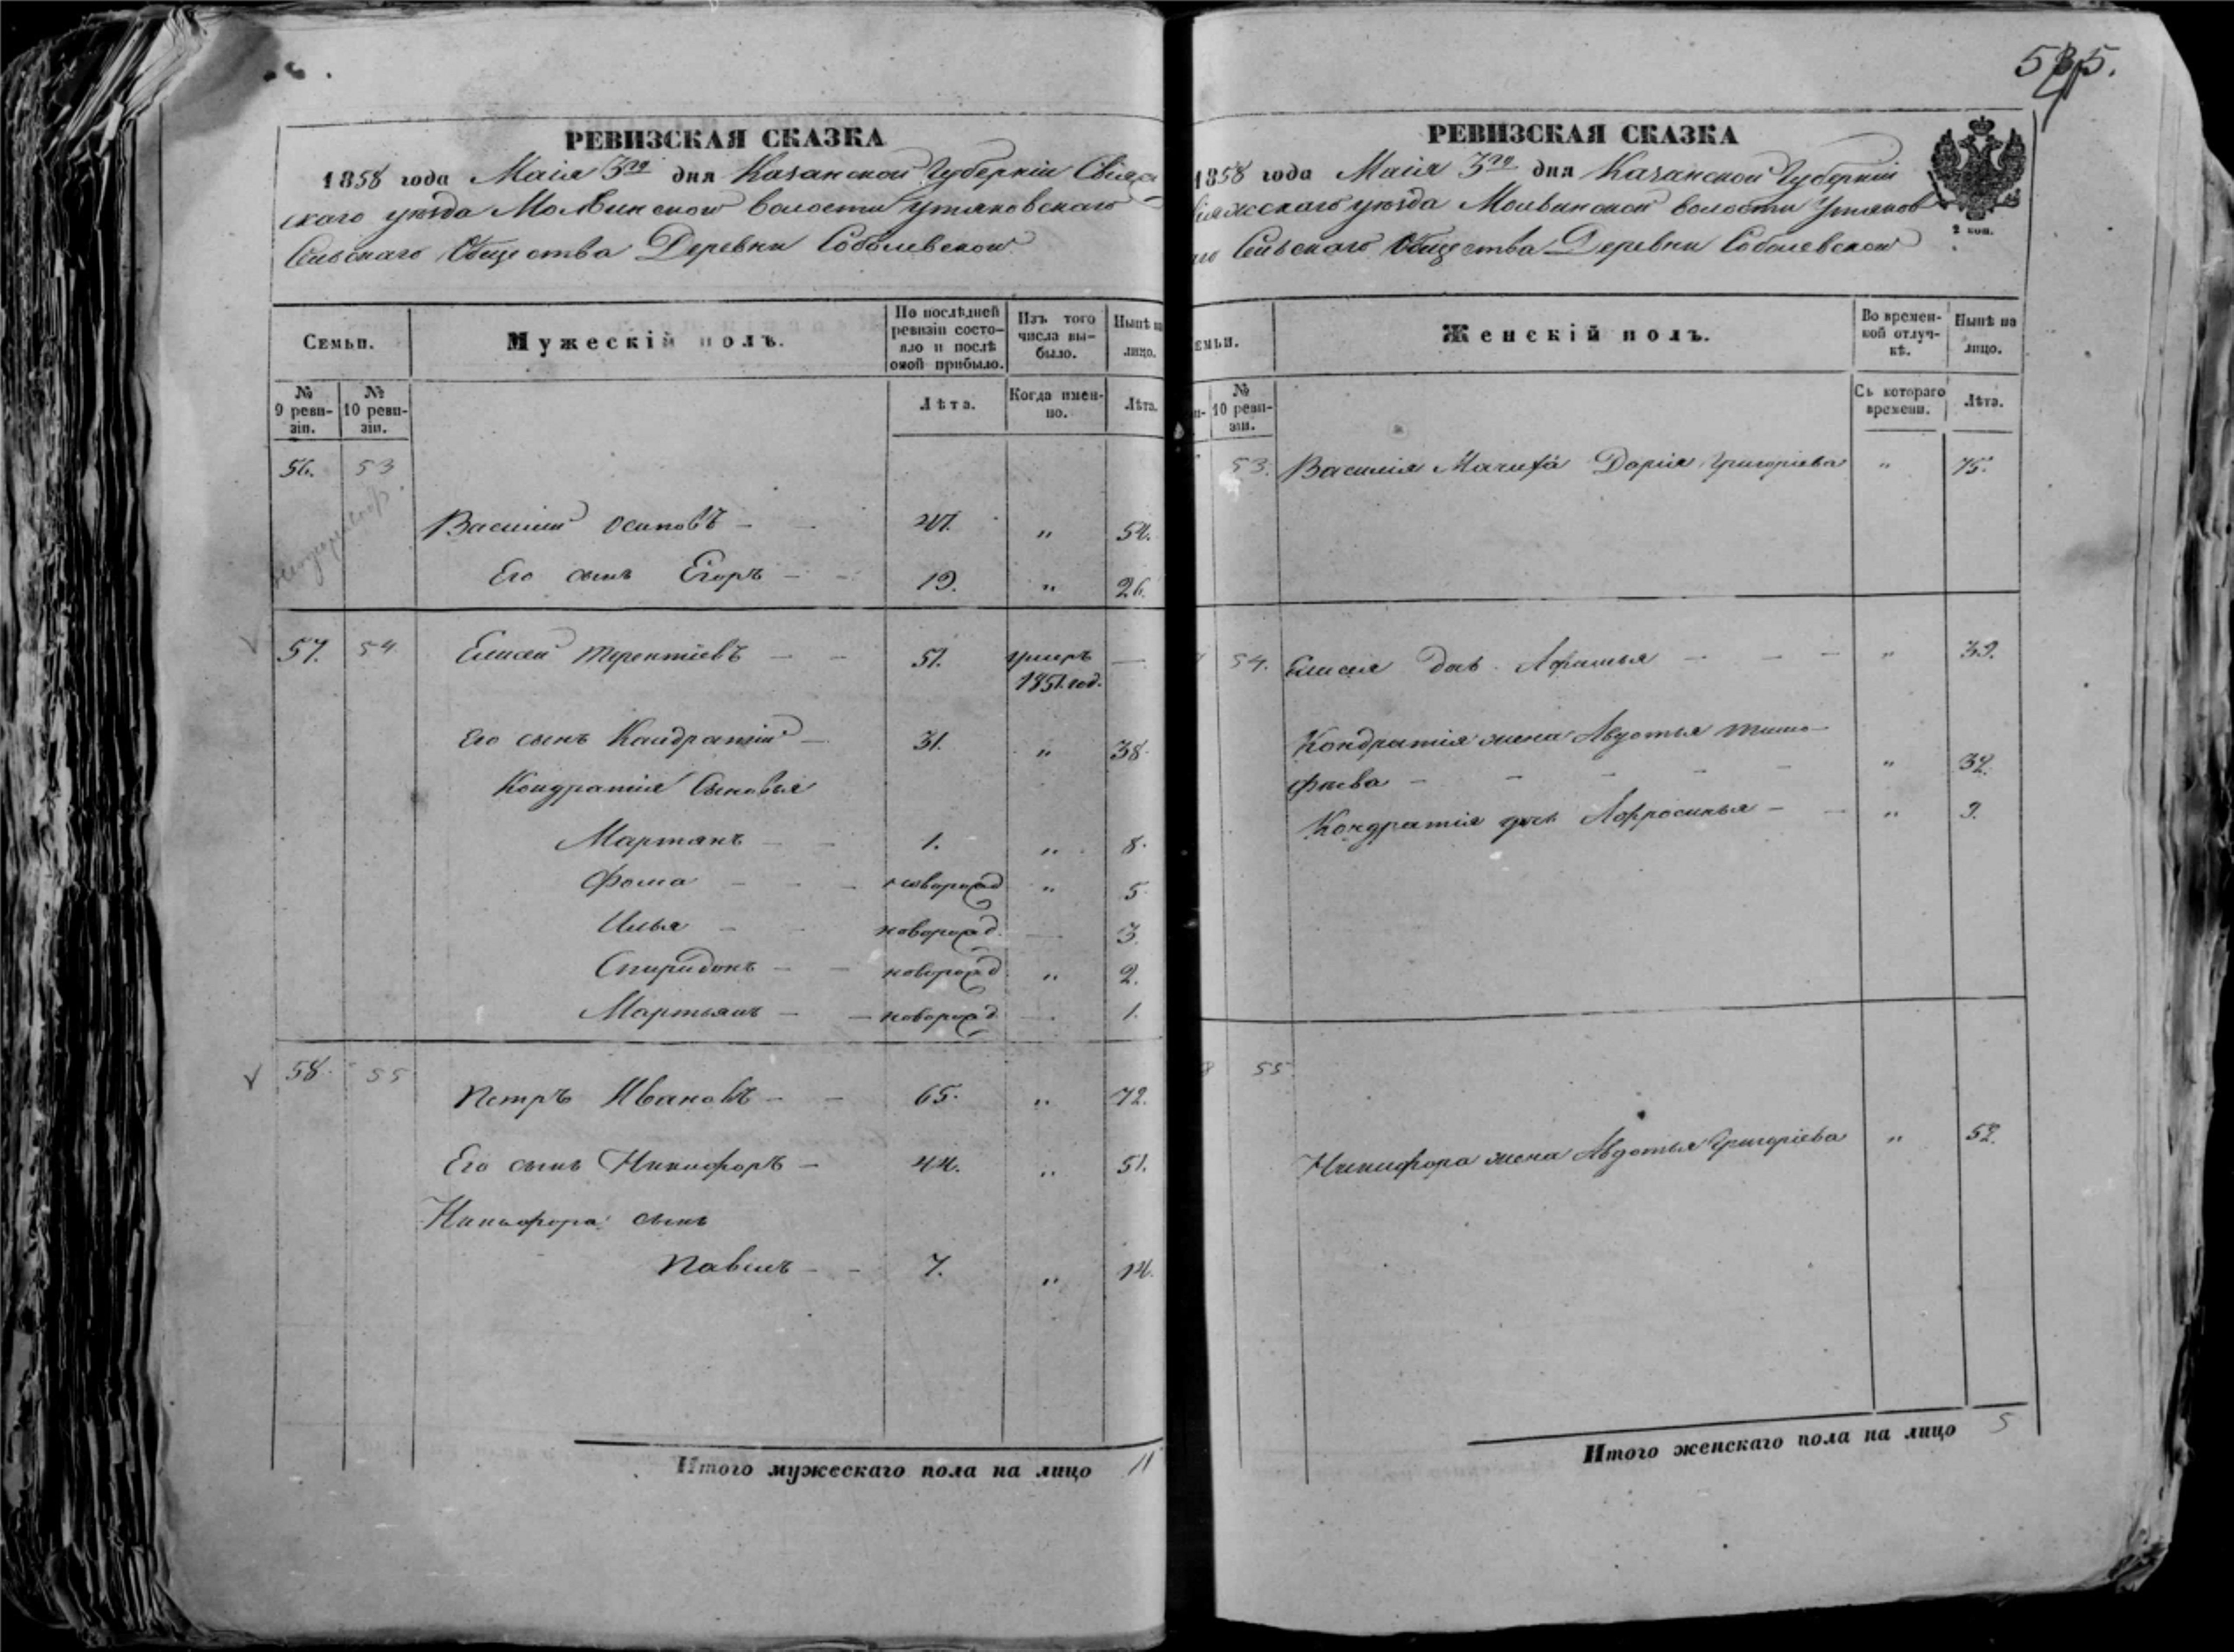 535.
РЕВИЗСКАЯ СКАЗКА
1858 года Маія 3го дня Казанской Губерніи Свіяж
скаго уѣзда Молвинской волости Утяковскаго
Сельскаго Общества Деревни Соболевской
Семьи.
Мужескій полъ.
По послѣдней ревизіи состояло и послѣ оной прибыло.
Изъ того числа выбыло.
Нынѣ на лицо.
№ 9 ревизіи.
№ 10 ревизіи.
Лѣта.
Когда именно.
Лѣта.
56. 53
Василій Осиповъ - - 47. " 54.
Его сынъ Егоръ - - 19. " 26.
57. 54 Елисей Терентіевъ - - 51. умеръ —
1851. год.
Его сынъ Кандратій - 31. " 38.
Кондратія Сыновья
Мартянъ - - 1. " 8.
Фома - - - новорожд " 5.
Илья - - новорожд. — 3.
Спиридонъ - - новорожд " 2.
Мартьянъ - - новорожд — 1.
58. 55
Петръ Ивановъ - - 65. " 72.
Его сынъ Никифоръ - 44. " 51.
Никифора сынъ
Павелъ - - 7. " 14.
Итого мужескаго пола на лицо 11
РЕВИЗСКАЯ СКАЗКА
1858 года Маія 3го дня Казанской Губерніи
віяжскаго уѣзда Молвинской волости Утяков
го Сельскаго Общества Деревни Соболевской
2 коп.
емьи.
Женскій полъ.
Во временной отлучкѣ.
Нынѣ на лицо.
№ 10 ревизіи.
Съ котораго времени.
Лѣта.
53. Василія Мачиха Дарія Григоріева " 75.
54. Елисея дочь Афимья - - - " 39.
Кондратія жена Авдотья Тимо-
фѣева - - - - - " 32.
Кондратія дочь Афросинья - - " 9.
55
Никифора жена Авдотья Григоріева " 52.
Итого женскаго пола на лицо 5